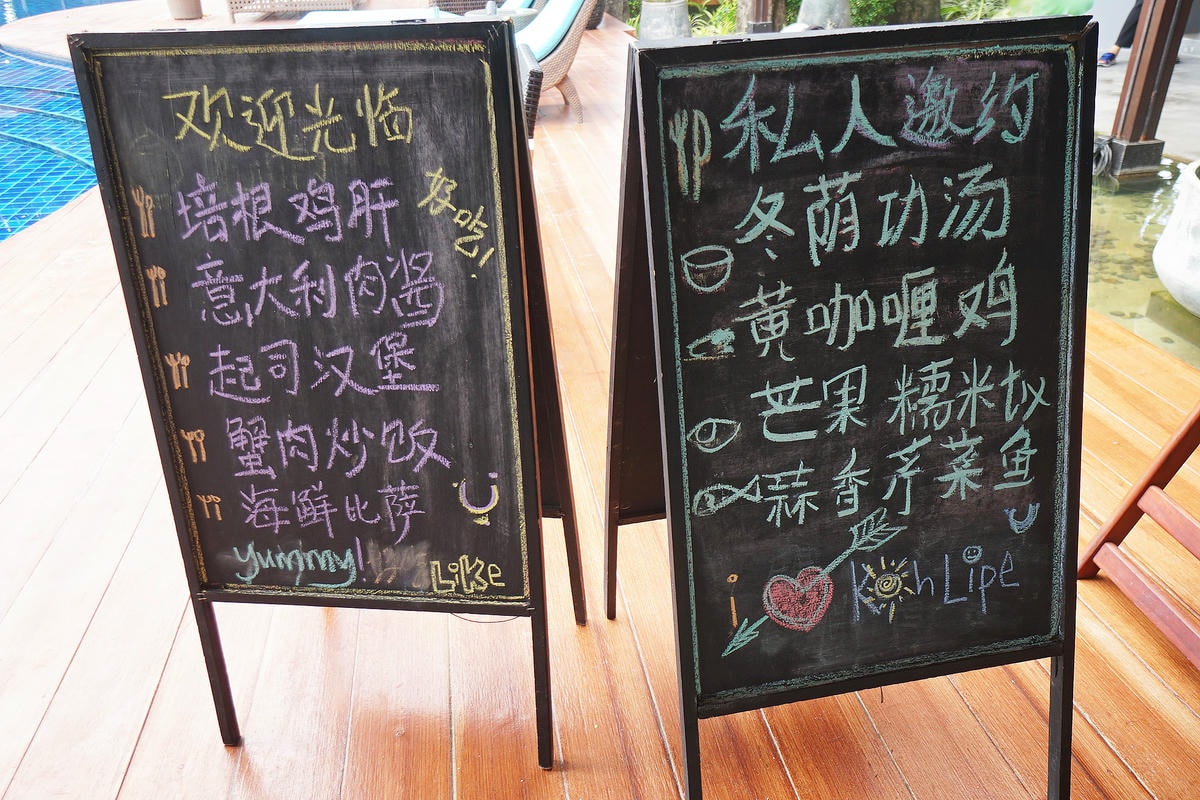 欢迎光临
培根鸡肝
好吃!
意大利肉酱
起司汉堡
蟹肉炒饭
海鲜比萨
yummy!
LiKe
私人邀约
冬荫功汤
黄咖喱鸡
芒果糯米饭
蒜香芥菜鱼
i
Koh Lipe